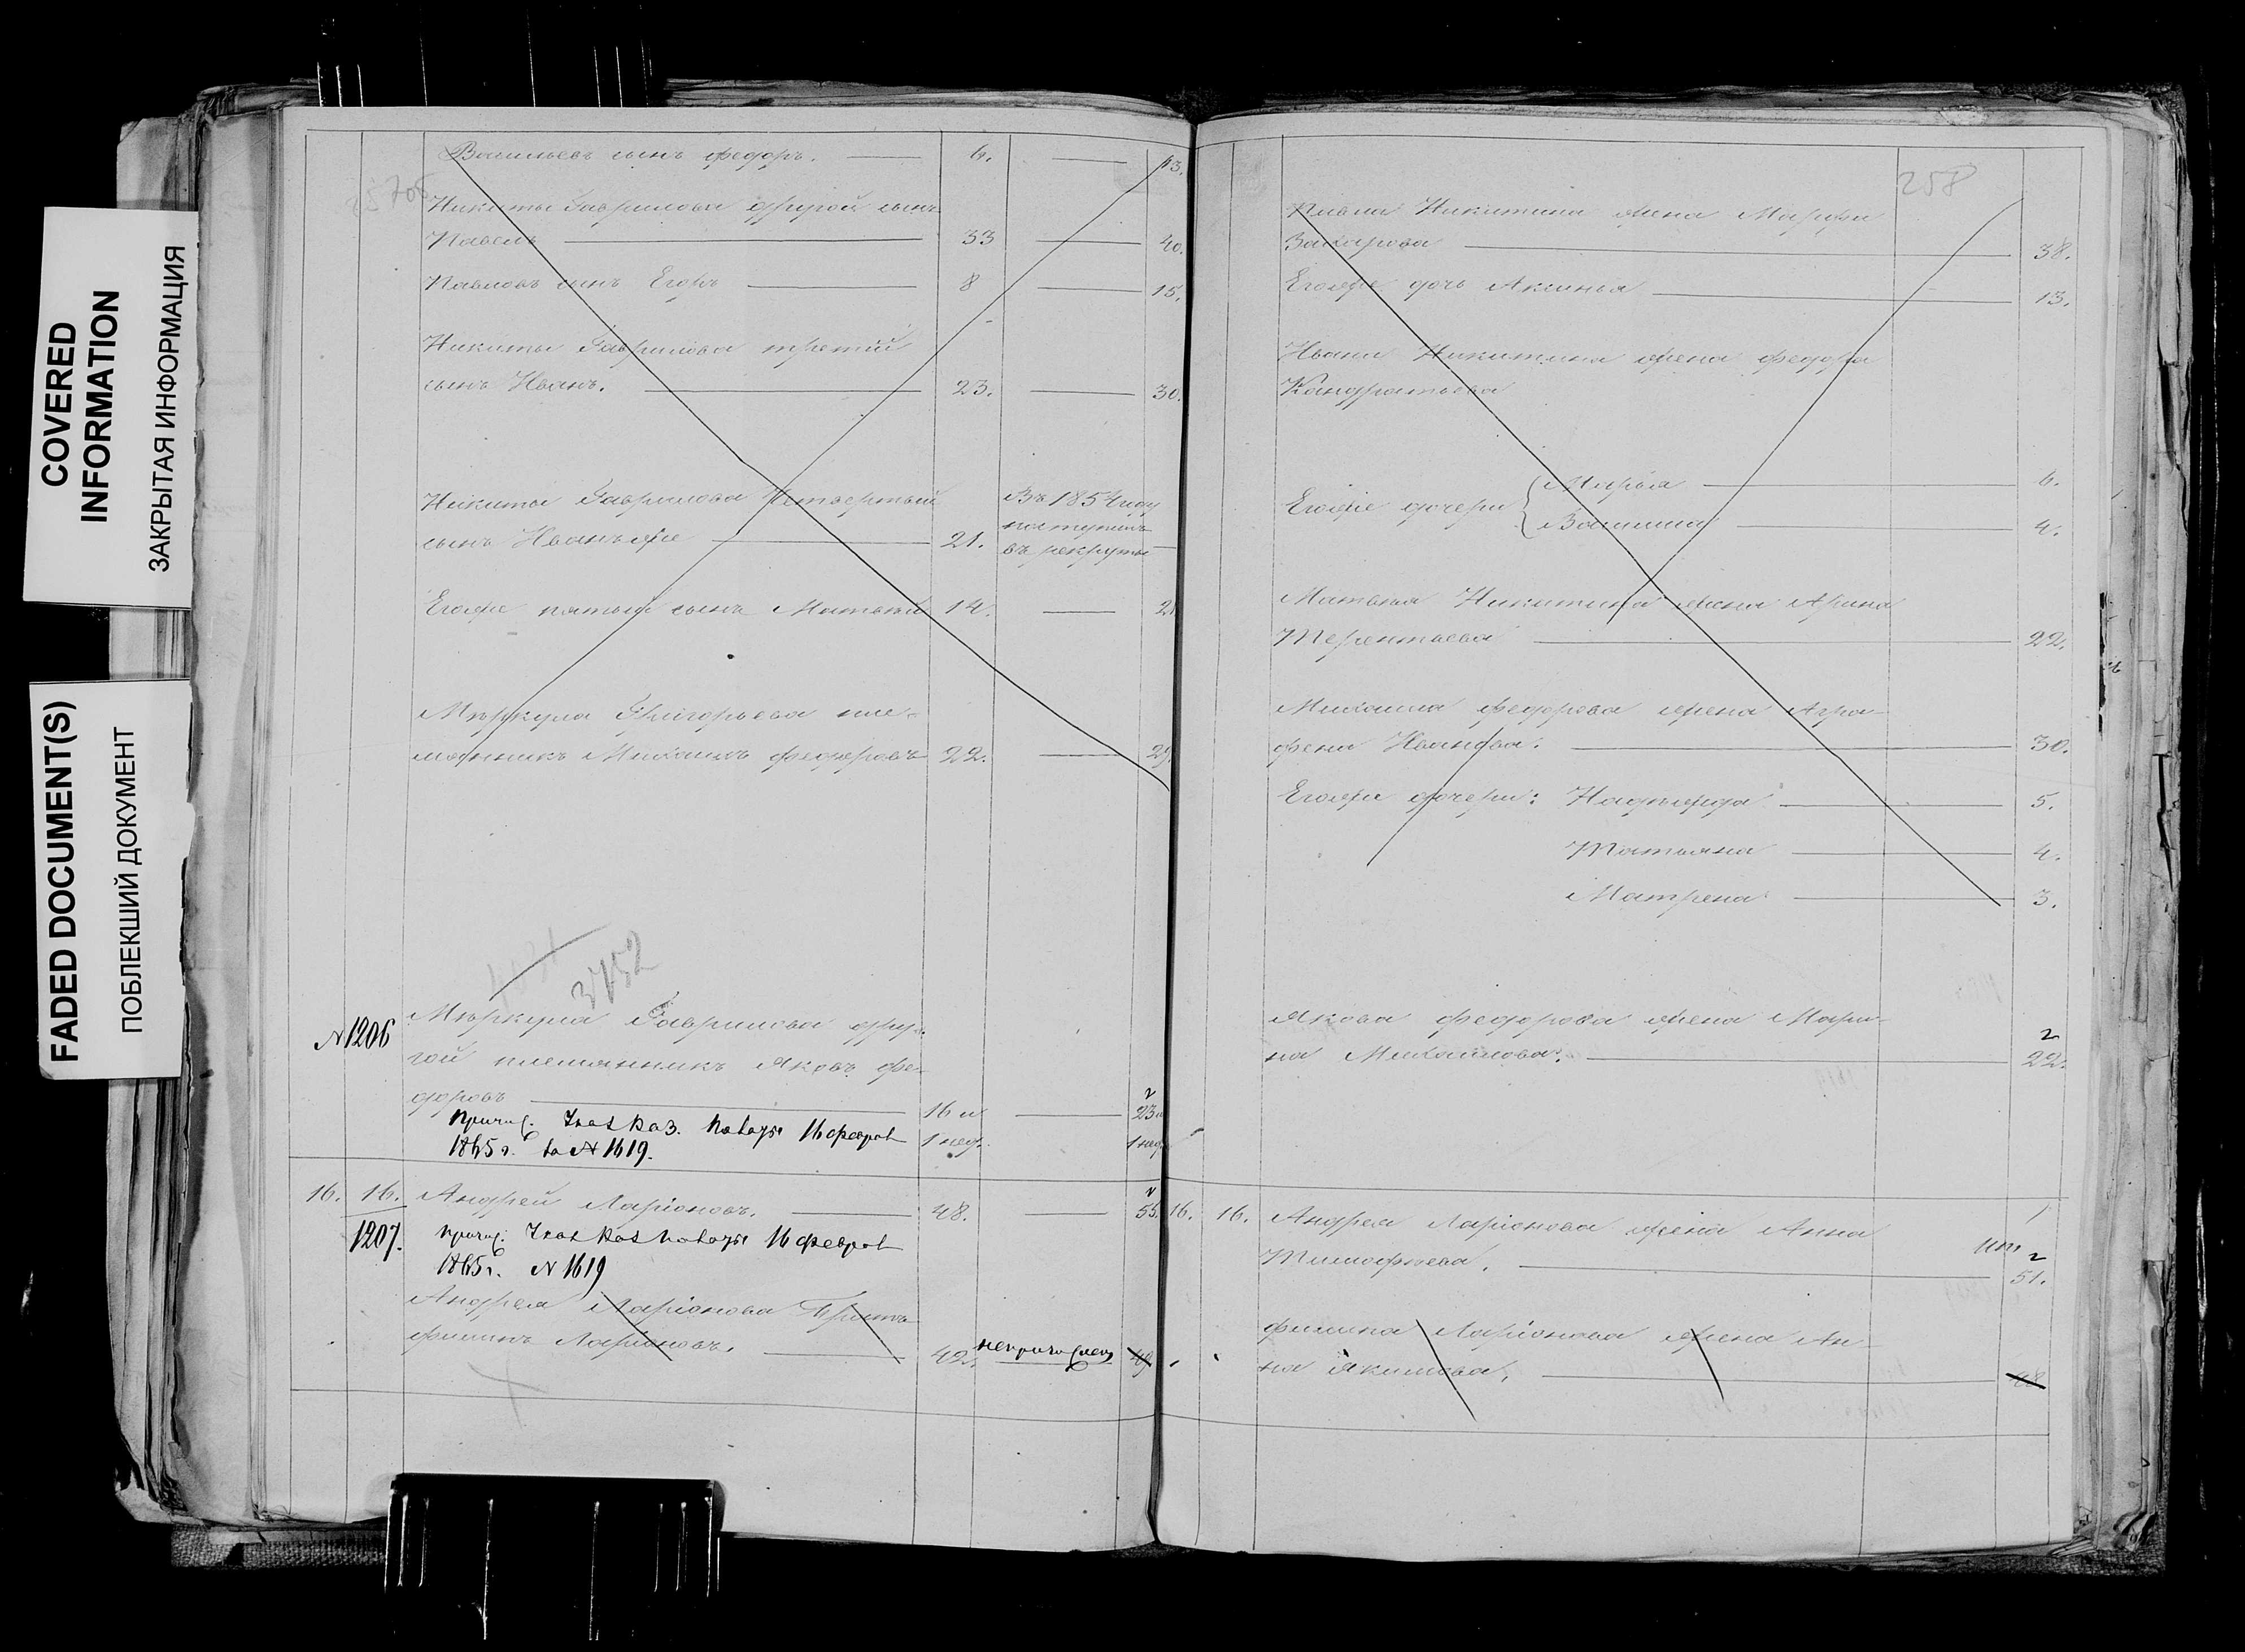 COVERED
INFORMATION
ЗАКРЫТАЯ ИНФОРМАЦИЯ
FADED DOCUMENT(S)
ПОБЛЕКШИЙ ДОКУМЕНТ
Васильевъ сынъ Федоръ. 6. 13.
Никиты Гаврилова другой сынъ
Павелъ 33 40.
Павловъ сынъ Егоръ 8 15.
Никиты Гаврилова третий
сынъ Иванъ. 23. 30.
Никиты Гаврилова четвертый Въ 1854 году
поступилъ
сынъ Иванъ же 21. въ рекруты
Его же пятый сынъ Матвей 14. 21
Меркула Григорьева пле-
мянникъ Михаилъ Федоровъ 22. 29.
3752
№1206 Меркула Гаврилова дру-
гой племянникъ Яковъ Фе-
доровъ 16 и 23 и
1 нед. 1 нед.
Причис. Указ Каз. Палаты 16 феврал
1865 г. за № 1619.
16. 16. Андрей Ларіоновъ. 48. 55.
1207. Причис. Указ Каз Палаты 16 феврал
1865 г. № 1619
Андрея Ларіонова братъ
Филипъ Ларіоновъ. 42. непричислен 49
258
Павла Никитина жена Марфа
Захарова 38.
Его же дочь Аксинья 13.
Ивана Никитина жена Федора
Кандратьева
Его же дочери Марья 6.
Василиса 4.
Матвея Никитина жена Арина
Терентьева 22.
Михаила Федорова жена Агра-
фена Иванова. 30.
Его же дочери: Надежда 5.
Татьяна 4.
Матрена 3.
Якова Федорова жена Мари-
на Михайлова. 22.
16. 16. Андрея Ларіонова жена Анна
Тимофеева. 51.
Филипа Ларіонова жена Ан-
на Якимова. 48